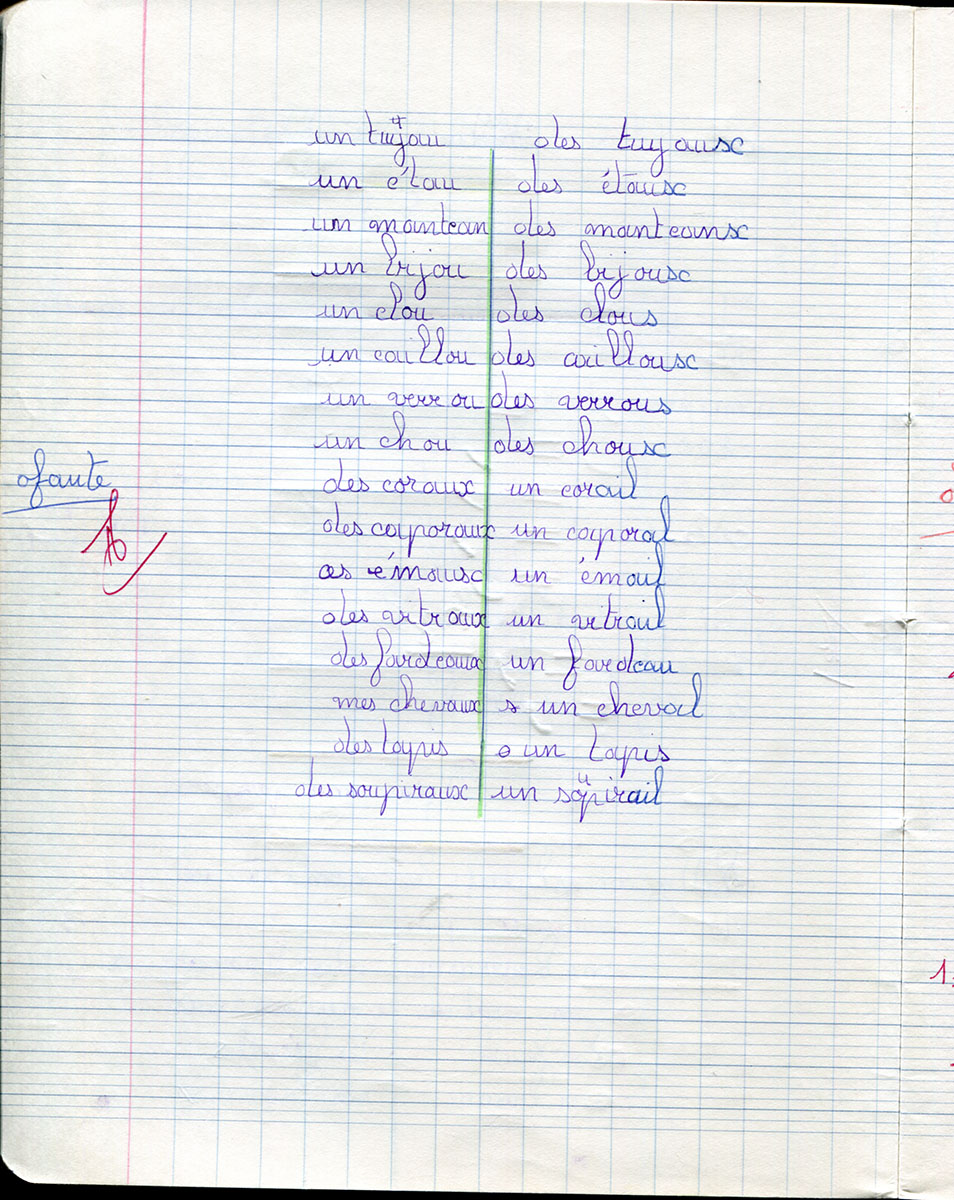 un tuyau des tuyaux
un étau des étaux
un manteau des manteaux
un bijou des bijoux
un clou des clous
un caillou des cailloux
un verrou des verrous
un chou des choux
0 faute
des coraux un corail
des caporaux un caporal
des émaux un émail
des vitraux un vitrail
des fardeaux un fardeau
mes chevaux un cheval
des tapis un tapis
des soupiraux un soupirail